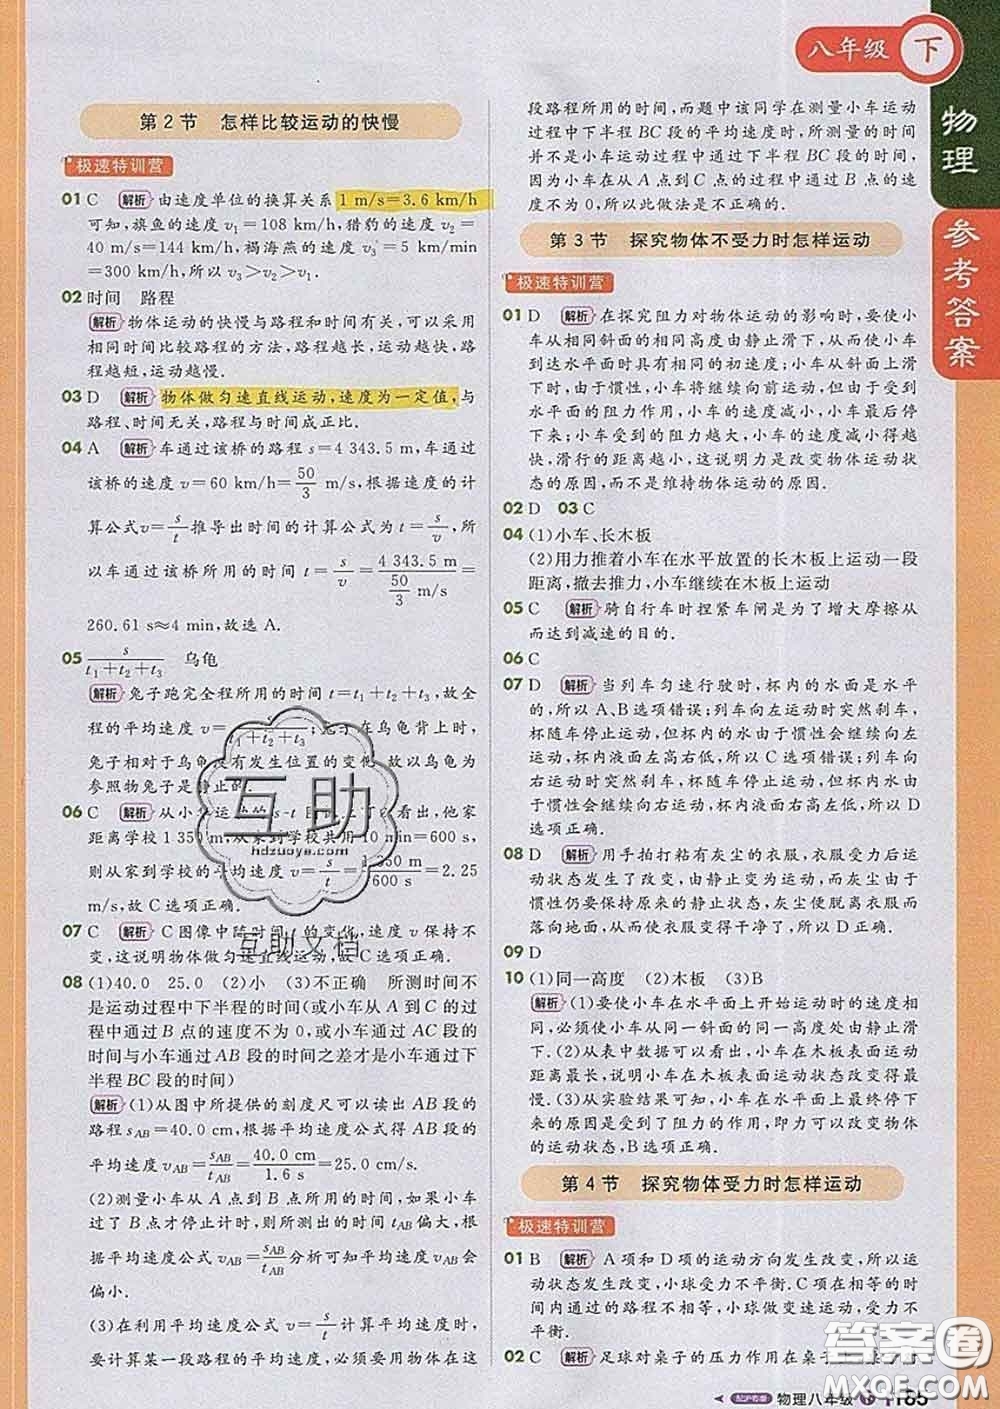 八年级 下
物理
参考答案
第2节 怎样比较运动的快慢
极速特训营
01 C 解析 由速度单位的换算关系 1 m/s=3.6 km/h
可知，旗鱼的速度 v₁=108 km/h，猎豹的速度 v₂=
40 m/s=144 km/h，褐海燕的速度 v₃=5 km/min
=300 km/h，所以 v₃>v₂>v₁.
02 时间 路程
解析 物体运动的快慢与路程和时间有关，可以采用
相同时间比较路程的方法，路程越长，运动越快，路
程越短，运动越慢.
03 D 解析 物体做匀速直线运动，速度为一定值，与
路程、时间无关，路程与时间成正比.
04 A 解析 车通过该桥的路程 s=4 343.5 m，车通过
该桥的速度 v=60 km/h=50/3 m/s，根据速度的计
算公式 v=s/t 推导出时间的计算公式为 t=s/v，所
以车通过该桥所用的时间 t=s/v=4 343.5 m/(50/3 m/s)=
260.61 s≈4 min，故选 A.
05 s/(t₁+t₂+t₃) 乌龟
解析 兔子跑完全程所用的时间 t=t₁+t₂+t₃，故全
程的平均速度 v=s/(t₁+t₂+t₃)；兔子在乌龟背上时，
兔子相对于乌龟没有发生位置的变化，故以乌龟为
参照物兔子是静止的.
06 C 解析 从小华运动的 s-t 图可以看出，他家
距离学校 1 350 m，从家到学校共用 10 min=600 s，
则从家到学校的平均速度 v=s/t=1 350 m/600 s=2.25
m/s，故 C 选项正确.
07 C 解析 C 图像中随时间 t 的变化，速度 v 保持不
变，这说明物体做匀速直线运动，故 C 选项正确.
08 (1)40.0 25.0 (2)小 (3)不正确 所测时间不
是运动过程中下半程的时间(或小车从 A 到 C 的过
程中通过 B 点的速度不为 0，或小车通过 AC 段的
时间与小车通过 AB 段的时间之差才是小车通过下
半程 BC 段的时间)
解析 (1)从图中所提供的刻度尺可以读出 AB 段的
路程 sAB=40.0 cm，根据平均速度公式得 AB 段的
平均速度 vAB=sAB/tAB=40.0 cm/1.6 s=25.0 cm/s.
(2)测量小车从 A 点到 B 点的时间时，如果小车
过了 B 点才停止计时，则所测出的时间 tAB 偏大，根
据平均速度公式 vAB=sAB/tAB 分析可知平均速度 vAB 会
偏小.
(3)在利用平均速度公式 v=s/t 计算平均速度时，
要计算某一段路程的平均速度，必须要用物体在这
段路程所用的时间，而题中该同学在测量小车运动
过程中下半程 BC 段的平均速度时，所测量的时间
并不是小车运动过程中通过下半程 BC 段的时间，
因为小车在从 A 点到 C 点的过程中，经过 B 点的速
度不为 0，所以此做法是不正确的.
第3节 探究物体不受力时怎样运动
极速特训营
01 D 解析 在探究阻力对物体运动的影响时，要使小
车从相同斜面的相同高度由静止滑下，从而使小车
到达水平面时具有相同的初速度；小车从斜面上滑
下时，由于惯性，小车将继续向前运动，但由于受到
水平面的阻力作用，小车的速度不断减小，最后停止
运动；小车受到的阻力越大，小车的速度减小得越
快，滑行的距离越小，这说明力是改变物体运动状
态的原因，而不是维持物体运动的原因.
02 D 03 C
04 (1)小车、长木板
(2)用力推着小车在水平放置的长木板上运动一段
距离，撤去推力，小车继续在木板上运动
05 C 解析 骑自行车时捏紧车闸是为了增大摩擦从
而达到减速的目的.
06 C
07 D 解析 当列车匀速行驶时，杯内的水面是水平
的，所以 A、B 选项错误；列车向左运动时突然刹车，
杯随车停止运动，但杯内水由于惯性会继续向左运
动，杯内液面左高右低，所以 C 选项错误；列车向
右运动时突然刹车，杯随车停止运动，杯内水由于
惯性会继续向右运动，杯内液面右高左低，所以 D
选项正确.
08 D 解析 用手拍打粘有灰尘的衣服，衣服受力后运
动状态发生了改变，由静止变为运动，而灰尘由于
惯性仍要保持原来的静止状态，灰尘便脱离衣服而
落向地面，从而使衣服变得干净，故 D 选项正确.
09 D
10 (1)同一高度 (2)木板 (3)B
解析 (1)要使小车在水平面上开始运动时的速度相
同，必须使小车从同一斜面的同一高度处由静止滑
下.(2)从表中数据可以看出，小车在木板表面运动
的距离最近，所以小车在木板表面运动状态改变得最
快.(3)从实验结果可以得到，小车在水平面上最终停下
来是受到了阻力的作用，即力可以改变小车
的运动状态，B 选项正确.
第4节 探究物体受力时怎样运动
极速特训营
01 B 解析 A 项和 D 项的运动方向发生改变，所以运
动状态发生改变，小球受力不平衡.C 项在相等的时
间内通过的路程不相等，小球做变速运动，受力不
平衡.
02 C 解析 足球对桌子的压力作用在桌子上
互助
hdzuoye.com
互助文档
答案圈
MXQE.COM
物理八年级 下 185